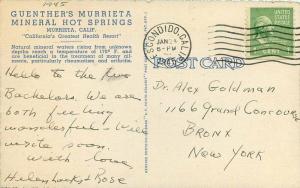 1945
GUENTHER'S MURRIETA
MINERAL HOT SPRINGS
MURRIETA, CALIF.
"California's Greatest Health Resort"
Natural mineral waters rising from unknown
depths reach a temperature of 170° F. and
are beneficial in the treatment of many ail-
ments, particularly rheumatism and arthritis.
Hello to the two
Bachelors. We are
both feeling
wonderful. Will
write soon.
With love
Helen & Rose
ESCONDIDO, CALIF.
JAN 24
5-PM
POST CARD
Dr. Alex Goldman
1166 Grand Concourse
BRONX
NEW YORK